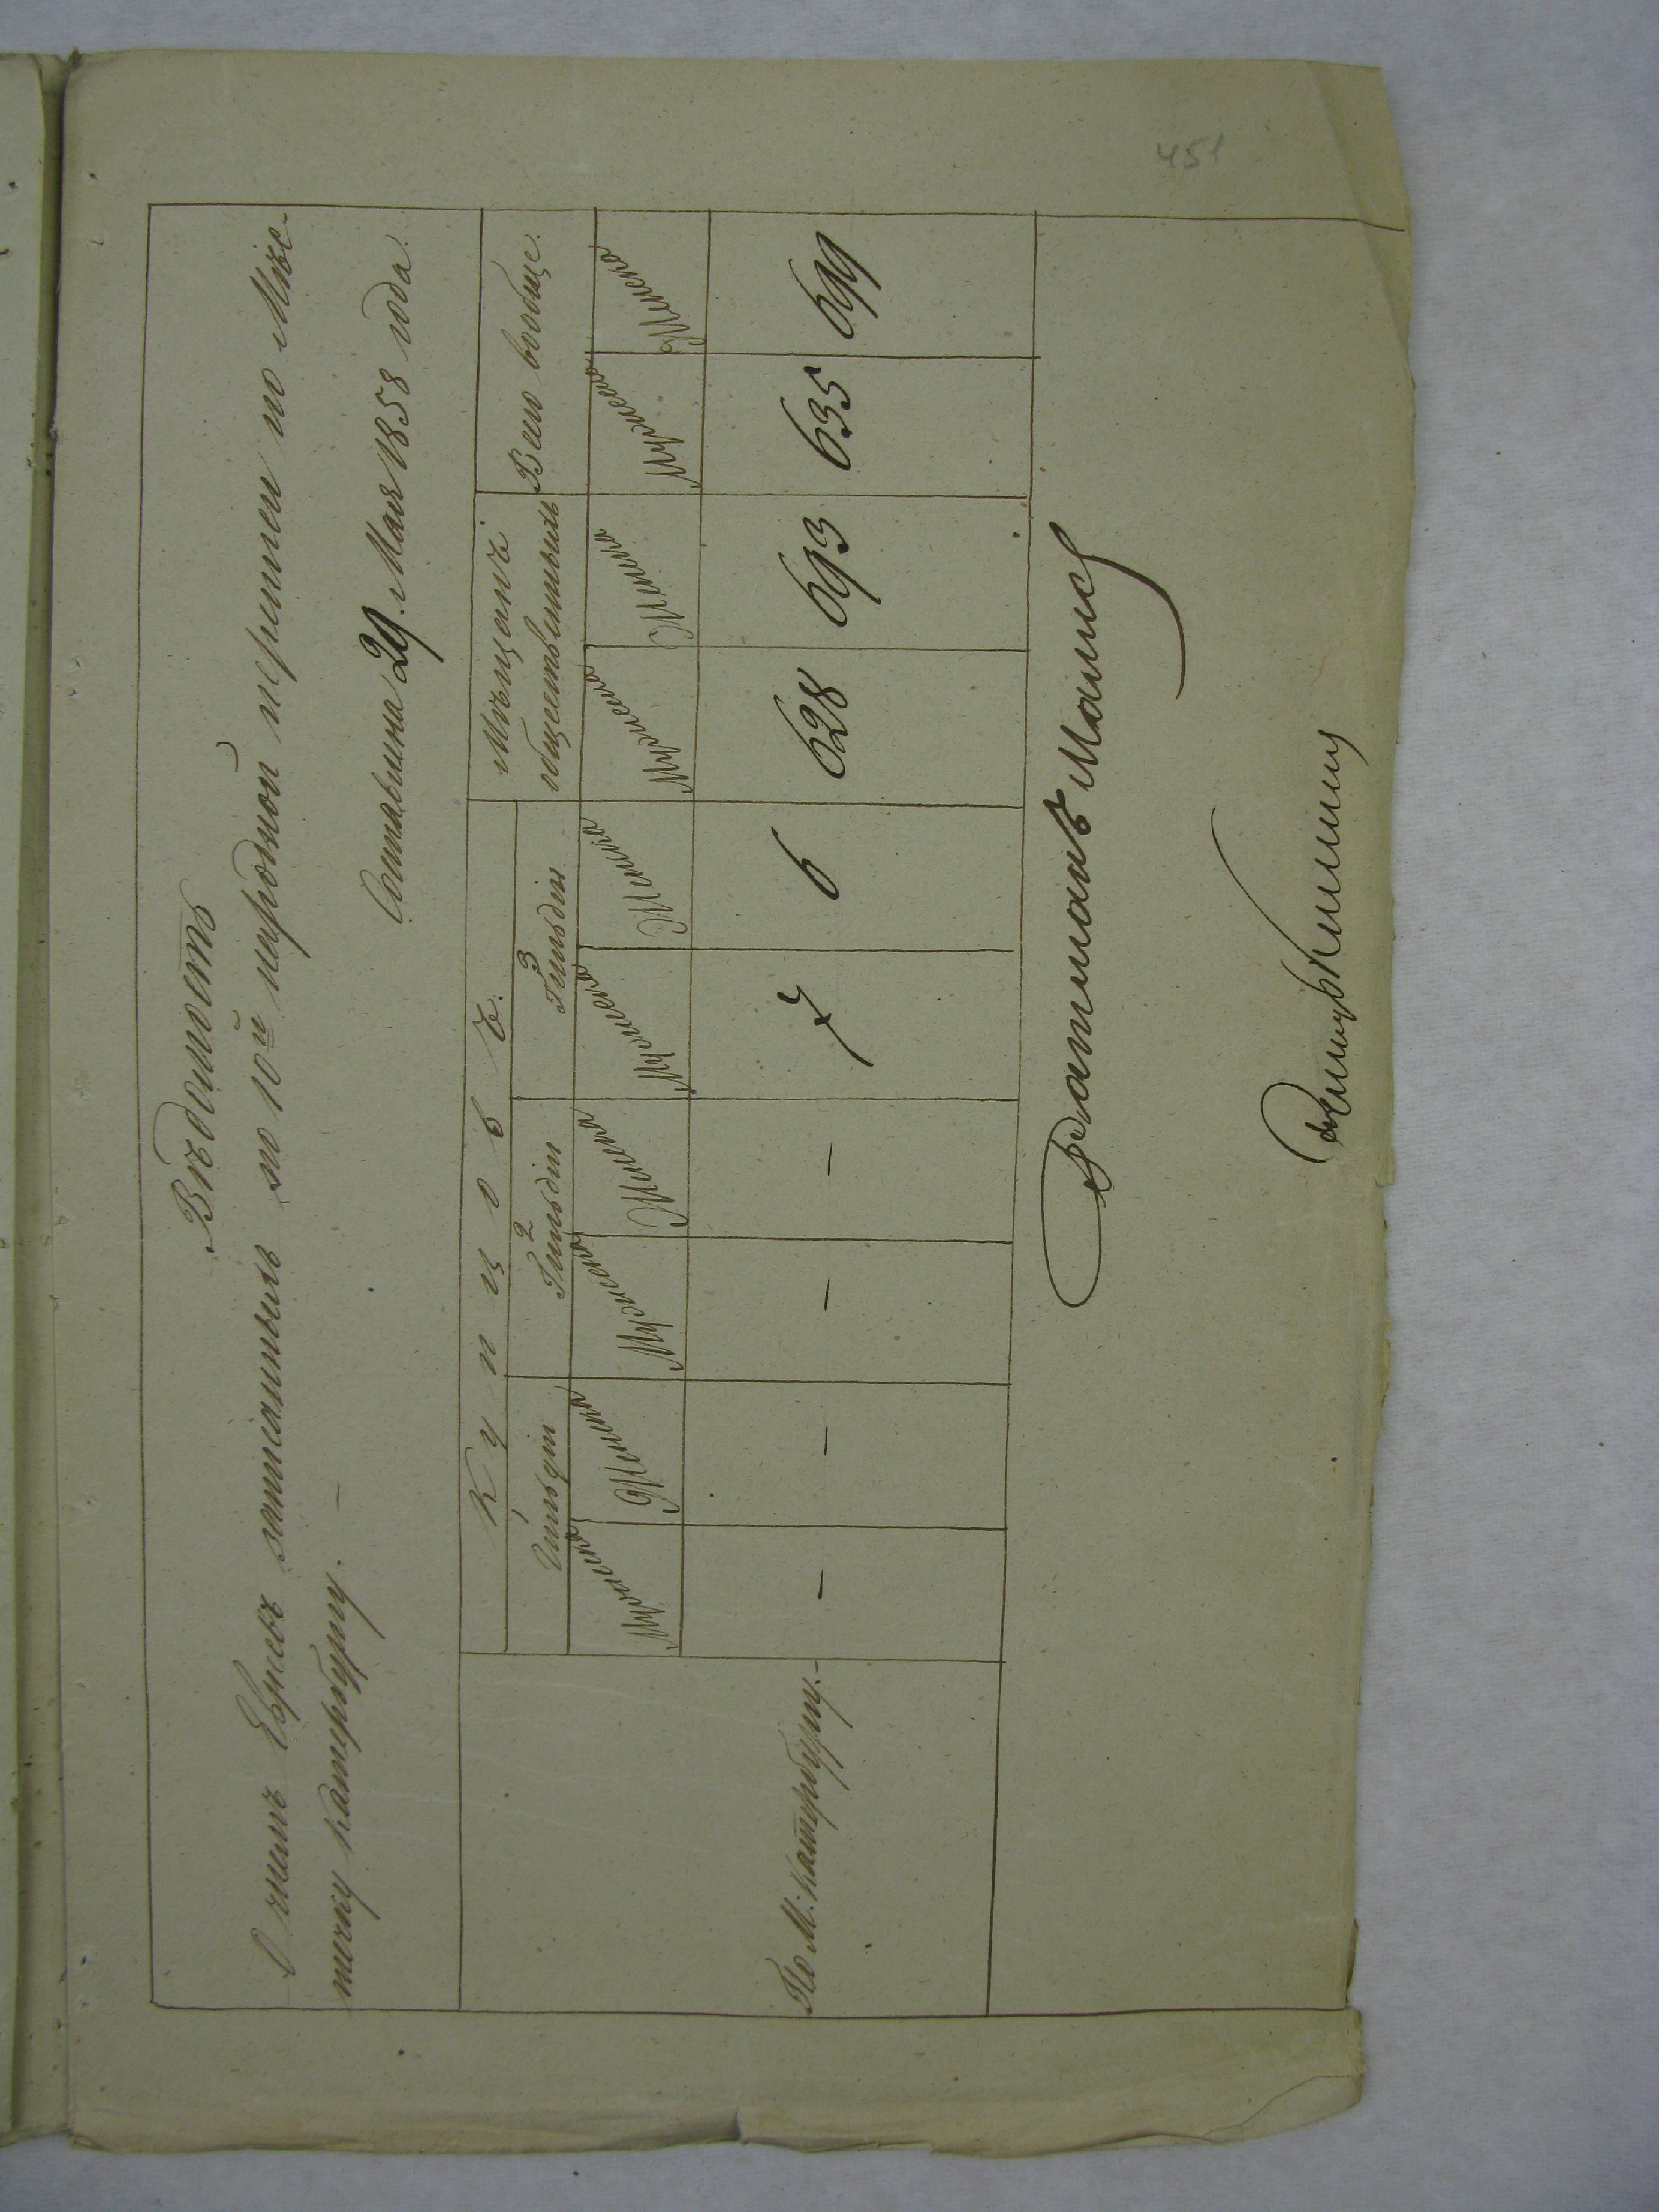 451
Вѣдомость
О числѣ Евреевъ записанныхъ по 10й народной переписи по Мѣс-
течку Катербургу. —
Составлена 29. Мая 1858 года.
Купцовъ.
Мѣщанъ
общественныхъ
Всего вообще.
1 Гильдіи
2 Гильдіи
3 Гильдіи
Мужеска Женска Мужеска Женска Мужеска Женска Мужеска Женска Мужеска Женска
По М: Катербургу. — — — — — 7 6 628 693 635 699